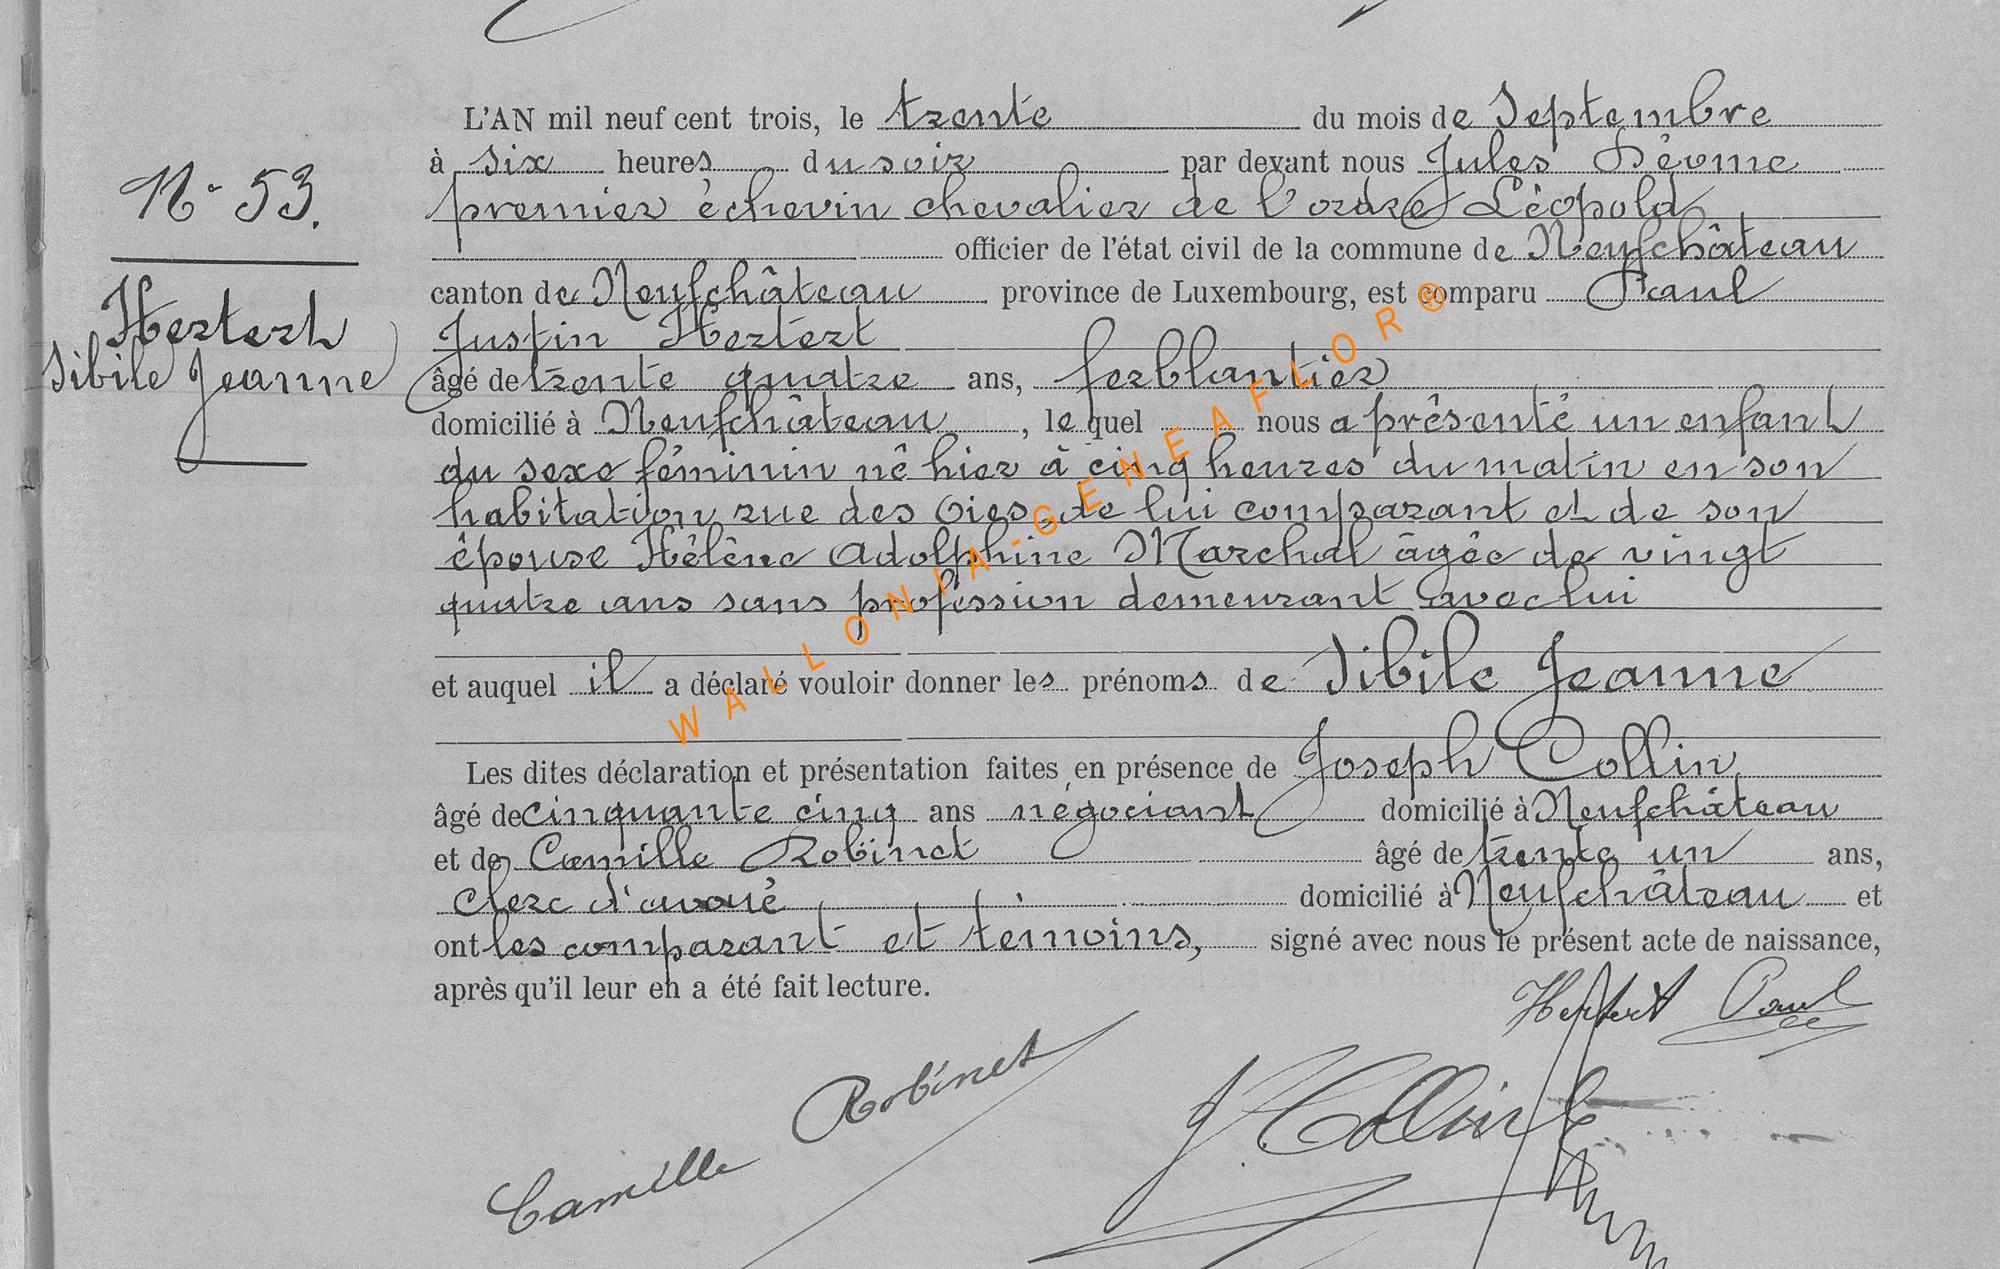 L'AN mil neuf cent trois, le trente du mois de Septembre
à six heures du soir par devant nous Jules
premier échevin chevalier de l'ordre Léopold
officier de l'état civil de la commune de Neufchâteau
canton de Neufchâteau province de Luxembourg, est comparu Paul
Justin Hertert
âgé de trente quatre ans, ferblantier
domicilié à Neufchâteau, lequel nous a présenté un enfant
du sexe féminin né hier à cinq heures du matin en son
habitation rue des Oies, de lui comparant et de son
épouse Hélène Adolphine Marchal âgée de vingt
quatre ans sans profession demeurant avec lui
et auquel il a déclaré vouloir donner les prénoms de Sibile Jeanne
Les dites déclaration et présentation faites en présence de Joseph Collin,
âgé de cinquante cinq ans négociant domicilié à Neufchâteau
et de Camille Robinet âgé de trente un ans,
clerc d'avoué domicilié à Neufchâteau et
ont les comparant et témoins, signé avec nous le présent acte de naissance,
après qu'il leur en a été fait lecture.
N° 53.
Hertert
Sibile Jeanne
Hertert Paul
Camille Robinet
J. Collin
WALLONIA-GENEAFLOR®